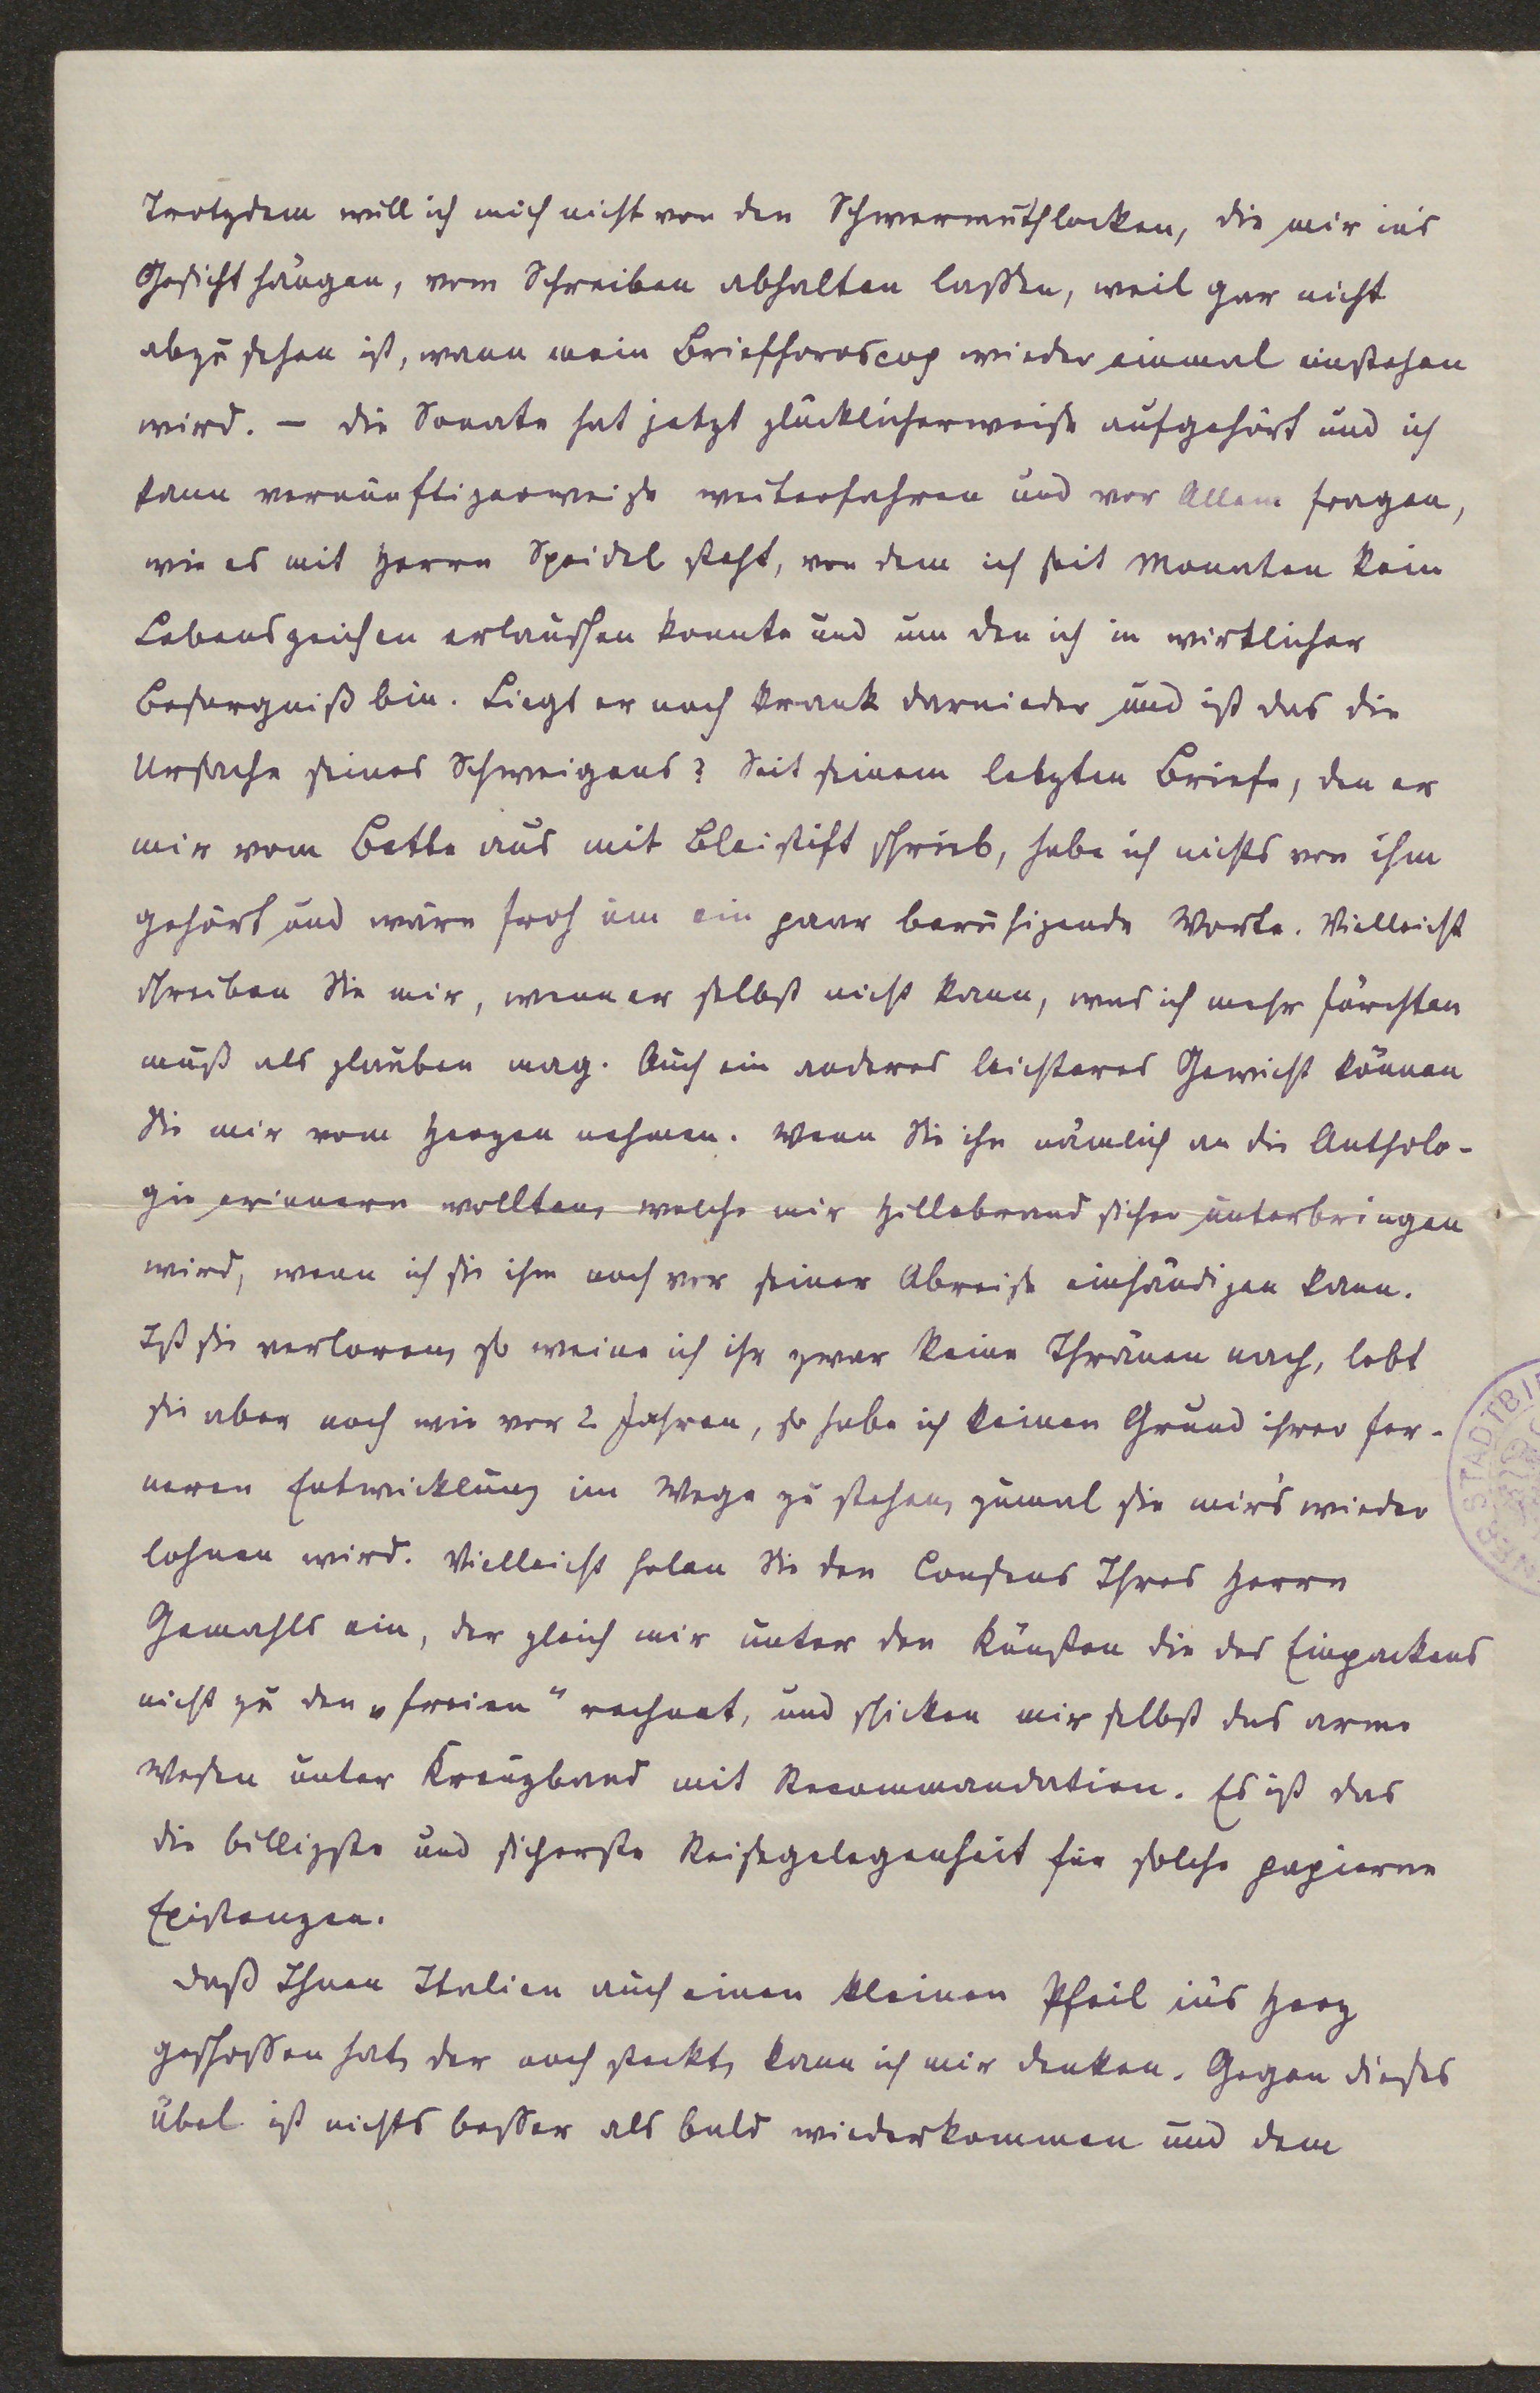 Trotzdem will ich mich nicht von den Schwermuthlocken, die mir in's
Gesicht hängen, vom Schreiben abhalten lassen, weil gar nicht
abzusehen ist, wann mein Briefhoroscop wieder einmal einstehen
wird. – Die Sonate hat jetzt glücklicherweise aufgehört und ich
kann vernünftigerweise weiterfahren und vor Allem fragen,
wie es mit Herrn Speidel steht, von dem ich seit Monaten kein
Lebenszeichen erlauschen konnte und um den ich in wirklicher
Besorgniß bin. Liegt er noch krank darnieder und ist das die
Ursache seines Schweigens? Seit seinem letzten Briefe, den er
mir vom Bette aus mit Bleistift schrieb, habe ich nichts von ihm
gehört und wäre froh um ein paar beruhigende Worte. Vielleicht
schreiben Sie mir, wenn er selbst nicht kann, was ich mehr fürchten
muß als glauben mag. Auch ein anderes leichteres Gewicht können
Sie mir vom Herzen nehmen. Wenn Sie ihn nämlich an die Antholo-
gie erinnern wollten, welche mir Hillebrand sicher unterbringen
wird, wenn ich sie ihm noch vor seiner Abreise einhändigen kann.
Ist sie verloren, so weine ich ihr zwar keine Thränen nach, lebt
sie aber noch wie vor 2 Jahren, so habe ich keinen Grund ihrer fer-
neren Entwicklung im Wege zu stehen, zumal sie mir's wieder
lohnen wird. Vielleicht holen Sie den Consens Ihres Herrn
Gemahls ein, der gleich mir unter den Künsten die des Einpackens
nicht zu den „freien" rechnet, und schicken mir selbst das arme
Wesen unter Kreuzband mit Recommandation. Es ist das
die billigste und sicherste Reisegelegenheit für solche papierne
Existenzen.
Daß Ihnen Italien auch einen kleinen Pfeil in's Herz
geschossen hat, der noch steckt, kann ich mir denken. Gegen dieses
Übel ist nichts besser als bald wiederkommen und dem
STADTBI